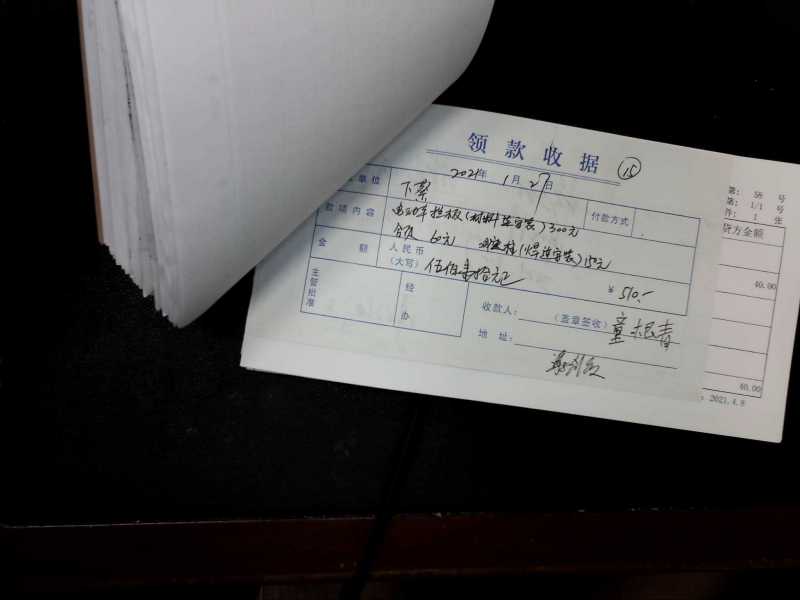 领款收据
15
2021年1月27日
单位 下蔡
款项内容 电动车挡板(材料连安装)300元
付款方式
60元 (焊连安装)150元
金额 人民币(大写) 伍佰壹拾元正
¥510.-
主管批准
经办
收款人: (盖章签收) 童根春
地址:
第: 58 号
第: 1/1 号
件: 1 张
贷方金额
40.00
40.00
: 2021.4.8